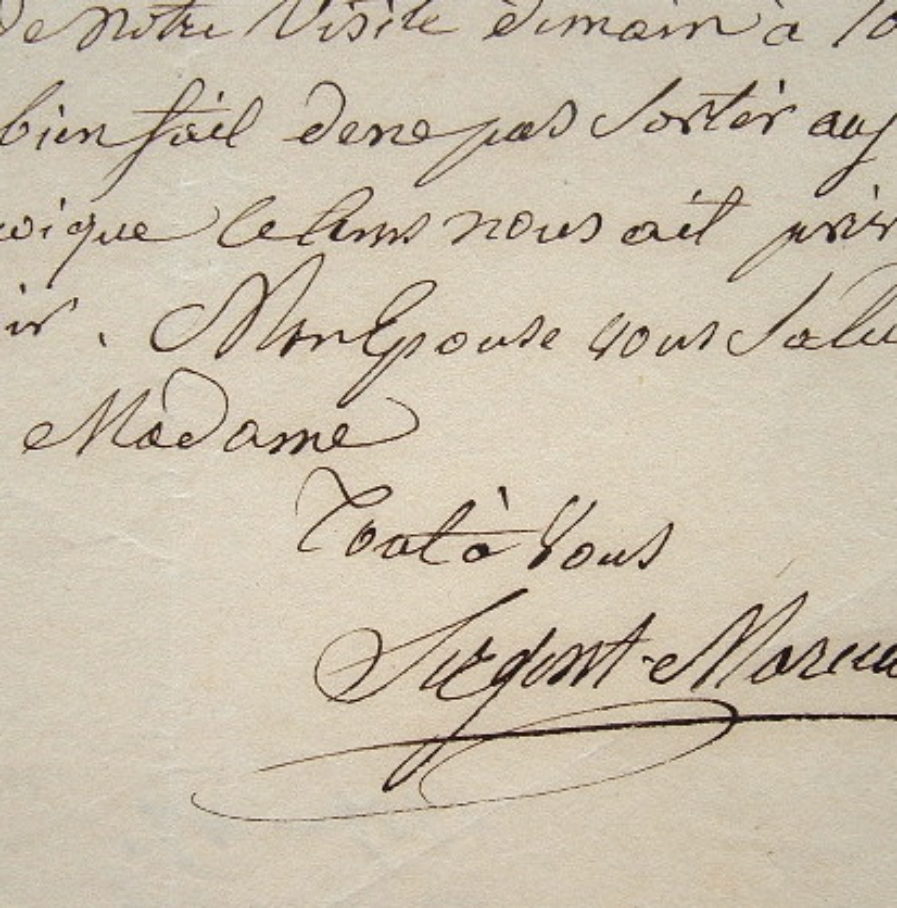 de notre visite demain à 10
bien fait de ne pas sortir auj
oique le tems nous ait
ir. Mon Epouse vous salu
Madame
Tout à Vous
Sergent-Marceau